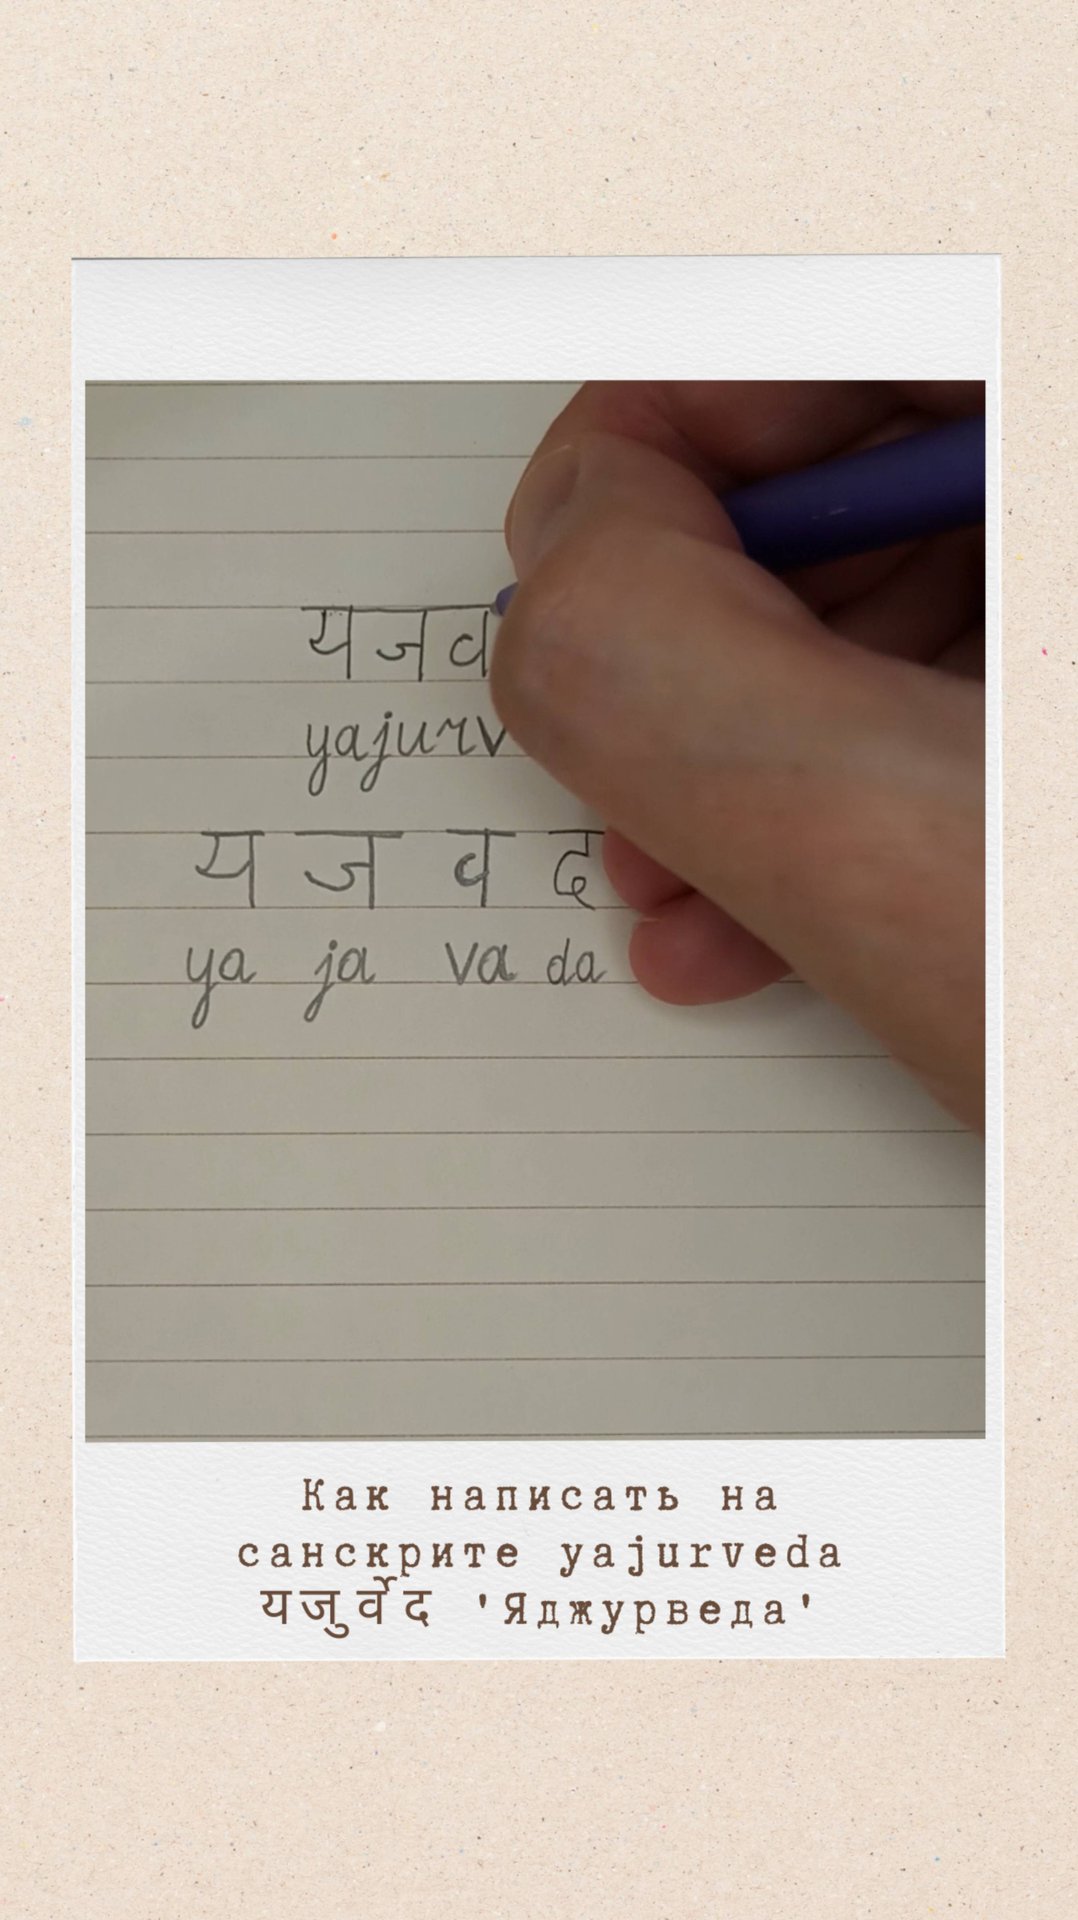 यजव
yajurv
य ज व द
ya ja va da
Как написать на
санскрите yajurveda
यजुर्वेद 'Яджурведа'